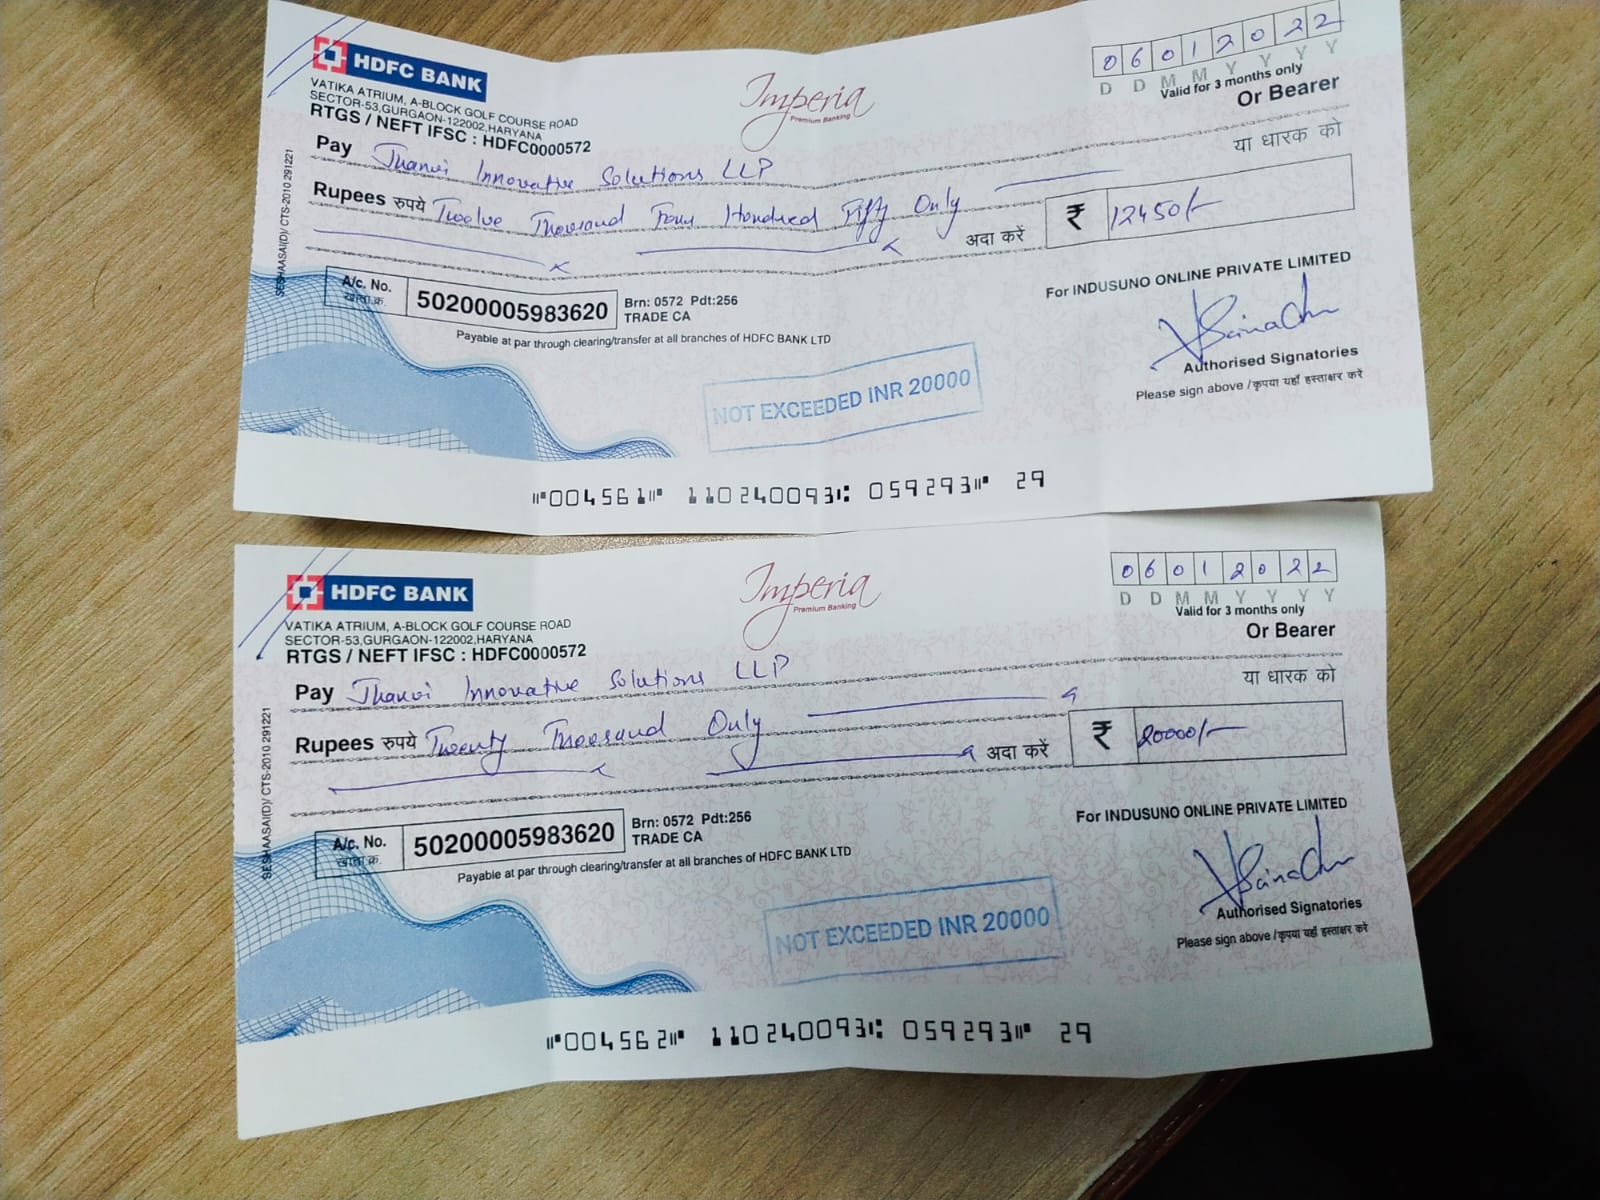 HDFC BANK
VATIKA ATRIUM, A-BLOCK GOLF COURSE ROAD
SECTOR-53,GURGAON-122002,HARYANA
RTGS / NEFT IFSC : HDFC0000572
Imperia
Premium Banking
06012022
D D M M Y Y Y Y
Valid for 3 months only
Or Bearer
या धारक को
Pay Jhanvi Innovative Solutions LLP
Rupees रुपये Twelve Thousand Four Hundred Fifty Only
अदा करें ₹ 12450/-
A/c. No. 50200005983620 Brn: 0572 Pdt:256
खाता क्र. TRADE CA
Payable at par through clearing/transfer at all branches of HDFC BANK LTD
SESHAASAI(D)/ CTS-2010 291221
For INDUSUNO ONLINE PRIVATE LIMITED
Authorised Signatories
Please sign above /कृपया यहाँ हस्ताक्षर करें
NOT EXCEEDED INR 20000
⑈004561⑈ 110240093⑆ 059293⑈ 29
HDFC BANK
VATIKA ATRIUM, A-BLOCK GOLF COURSE ROAD
SECTOR-53,GURGAON-122002,HARYANA
RTGS / NEFT IFSC : HDFC0000572
Imperia
Premium Banking
06012022
D D M M Y Y Y Y
Valid for 3 months only
Or Bearer
या धारक को
Pay Jhanvi Innovative Solutions LLP
Rupees रुपये Twenty Thousand Only
अदा करें ₹ 20000/-
A/c. No. 50200005983620 Brn: 0572 Pdt:256
खाता क्र. TRADE CA
Payable at par through clearing/transfer at all branches of HDFC BANK LTD
SESHAASAI(D)/ CTS-2010 291221
For INDUSUNO ONLINE PRIVATE LIMITED
Authorised Signatories
Please sign above /कृपया यहाँ हस्ताक्षर करें
NOT EXCEEDED INR 20000
⑈004562⑈ 110240093⑆ 059293⑈ 29